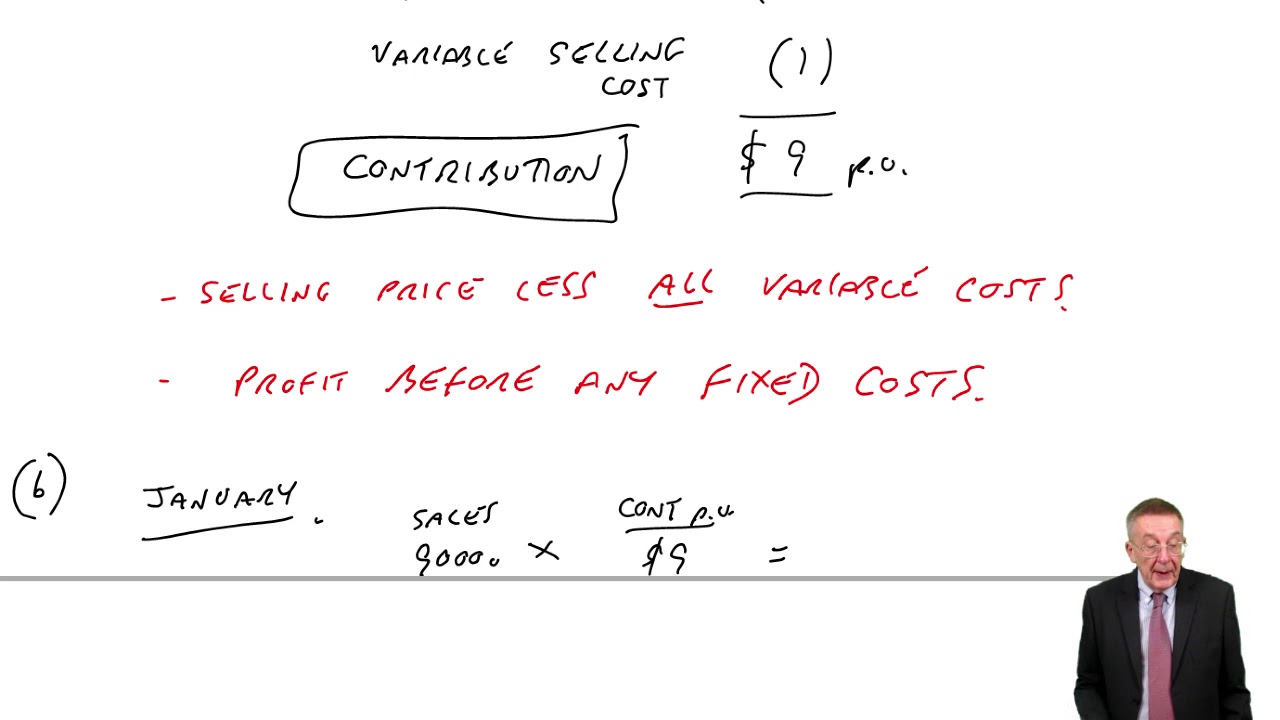 VARIABLE SELLING (1)
COST
CONTRIBUTION $ 9 p.u.
- SELLING PRICE LESS ALL VARIABLE COSTS.
- PROFIT BEFORE ANY FIXED COSTS.
(b) JANUARY. SALES CONT p.u.
9000. × $9 =